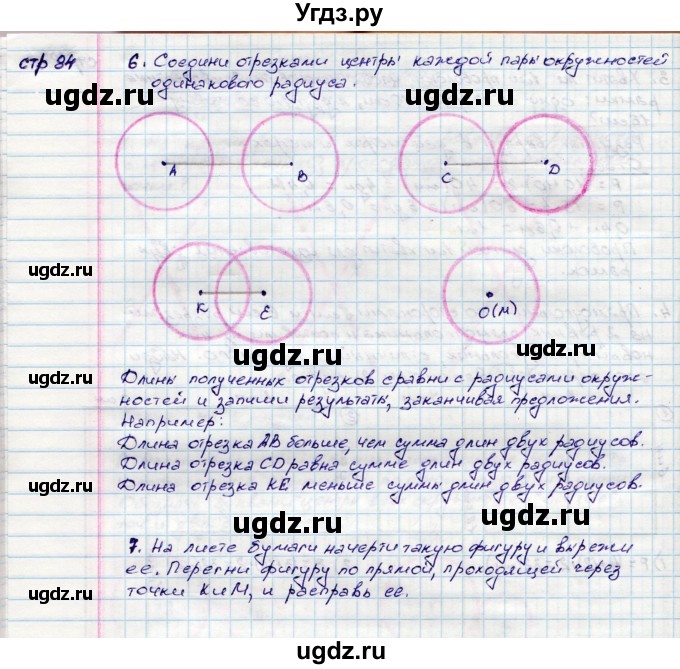 Угдз.ру
стр 84
6. Соедини отрезками центры каждой пары окружностей
одинакового радиуса.
ugdz.ru
ugdz.ru
ugdz.ru
A
B
C
D
ugdz.ru
ugdz.ru
ugdz.ru
K
E
O(M)
ugdz.ru
ugdz.ru
ugdz.ru
Длины полученных отрезков сравни с радиусами окруж-
ностей и запиши результаты, заканчивая предложения.
Например:
Длина отрезка AB больше, чем сумма длин двух радиусов.
Длина отрезка CD равна сумме длин двух радиусов.
Длина отрезка KE меньше суммы длин двух радиусов.
ugdz.ru
ugdz.ru
ugdz.ru
7. На листе бумаги начерти такую фигуру и вырежи
ее. Перегни фигуру по прямой, проходящей через
точки K и M, и расправь ее.
ugdz.ru
ugdz.ru
ugdz.ru